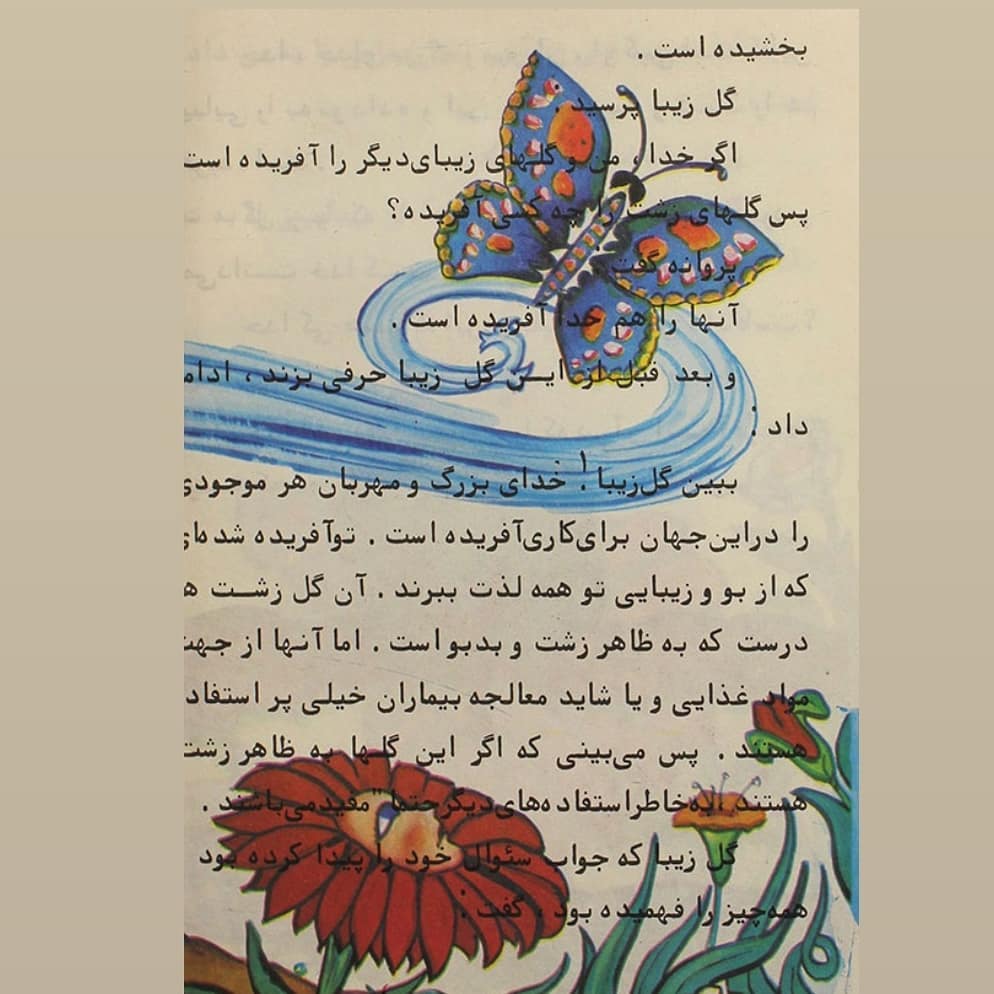 بخشیده است .
گل زیبا پرسید :
اگر خدا ، من و گلهای زیبای‌دیگر را آفریده است
پس گلهای زشت را چه کسی آفریده ؟
پروانه گفت :
آنها را هم خدا آفریده است .
و بعد قبل از ایــن گل زیبا حرفی بزند ،
داد :
ببین گل‌زیبا ! خدای بزرگ و مهربان هر موجودی
را دراین‌جهان برای‌کاری‌آفریده است . توآفریده شده‌ای
که از بو و زیبایی تو همه لذت ببرند . آن گل زشــت
درست که به ظاهر زشت و بدبو است . اما آنها از
مواد غذایی و یا شاید معالجه بیماران خیلی پر
هستند . پس می‌بینی که اگر این گلها به ظاهر زشت
هستند ،به‌خاطراستفاده‌های‌دیگرحتما" مفیدمی‌باشند .
گل زیبا که جواب سئوال خود را پیدا کرده بود
همه‌چیز را فهمیده بود ، گفت :